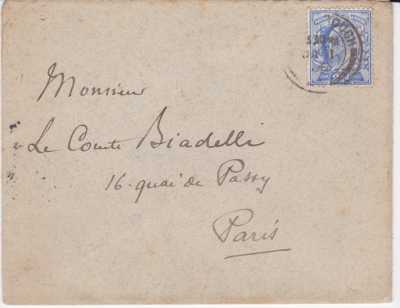 Monsieur
Le Comte Biadelli
16 quai de Passy
Paris